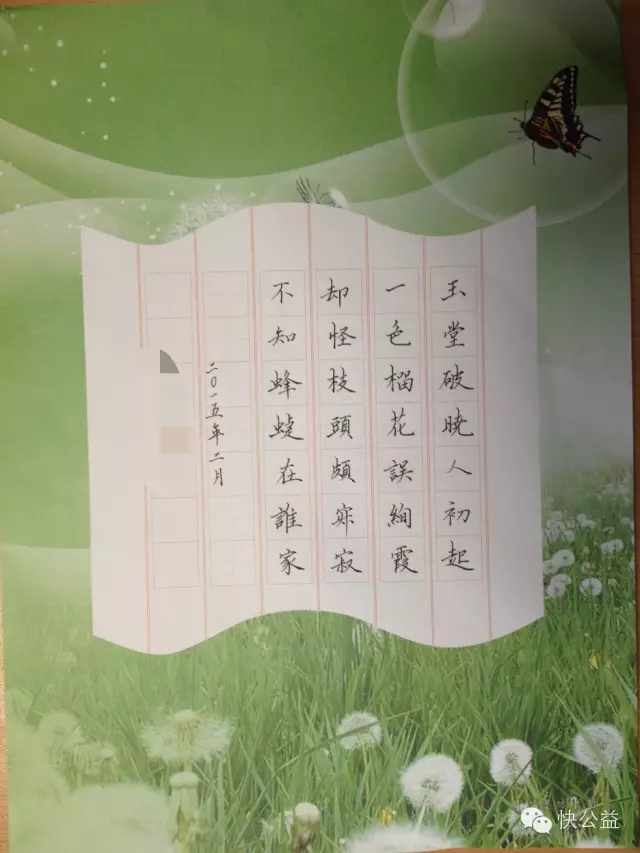 玉堂破曉人初起
一色榴花誤絢霞
却怪枝頭頗寂寂
不知蜂蜨在誰家
二〇一五年二月
快公益